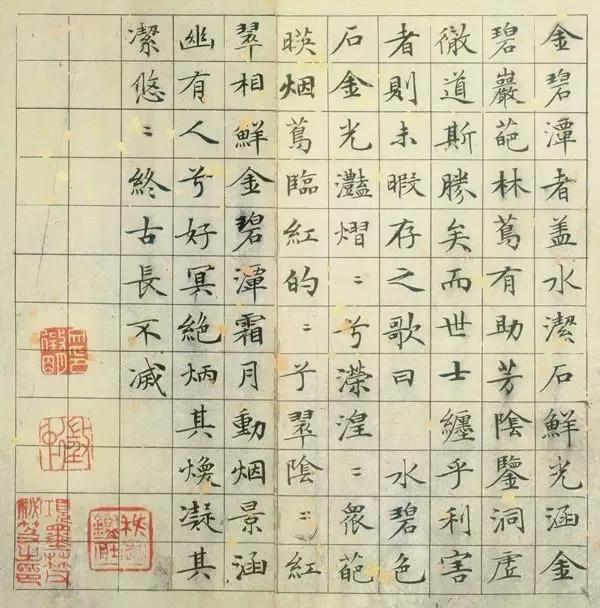 金碧潭者盖水潔石鮮光涵金
碧巖葩林蔦有助芳陰鑒洞虛
徹道斯勝矣而世士纏乎利害
者則未暇存之歌曰 水碧色
石金光灩熠〻兮濴湟〻衆葩
暎烟蔦臨紅的〻兮翠陰〻紅
翠相鮮金碧潭霜月動烟景涵
幽有人兮好冥絶炳其煥凝其
潔悠〻終古長不滅
項墨林父
秘笈之印